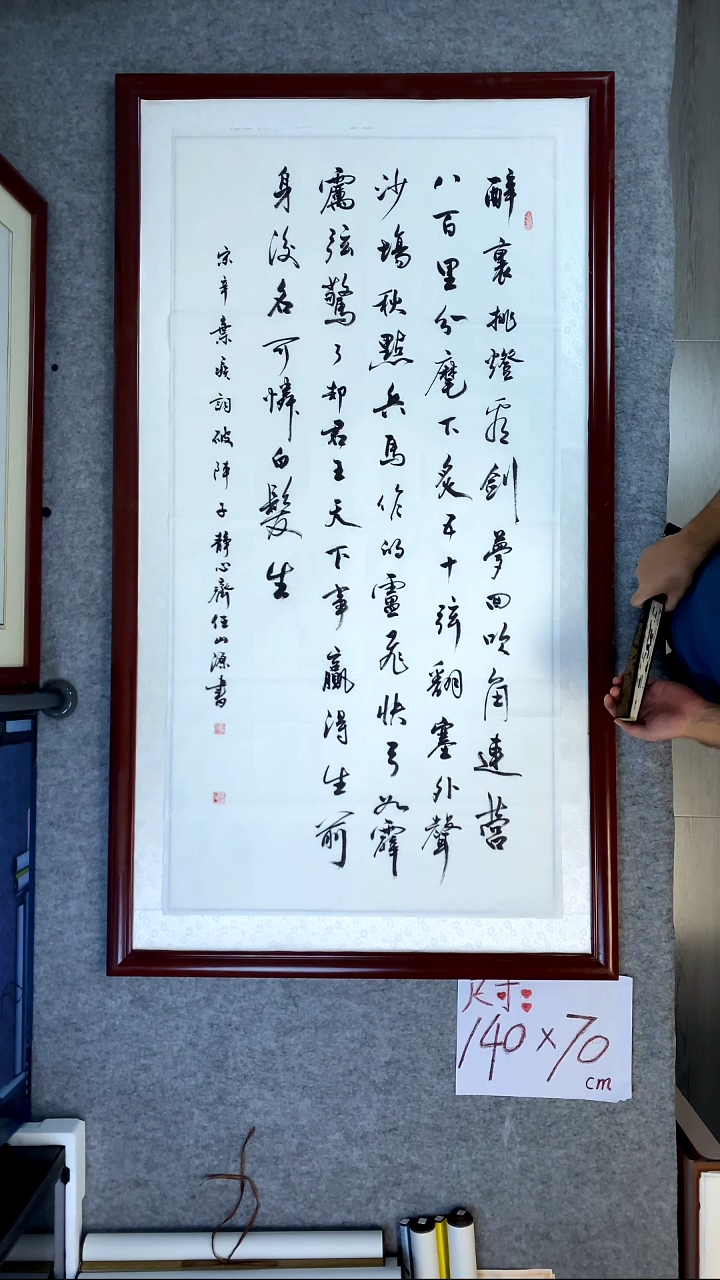 醉裏挑燈看劍夢回吹角連營
八百里分麾下炙五十弦翻塞外聲
沙場秋點兵馬作的盧飛快弓如霹
靂弦驚了却君王天下事贏得生前
身後名可憐白髮生
宋辛棄疾詞破陣子靜心齋任山源書
尺寸:
140×70
cm